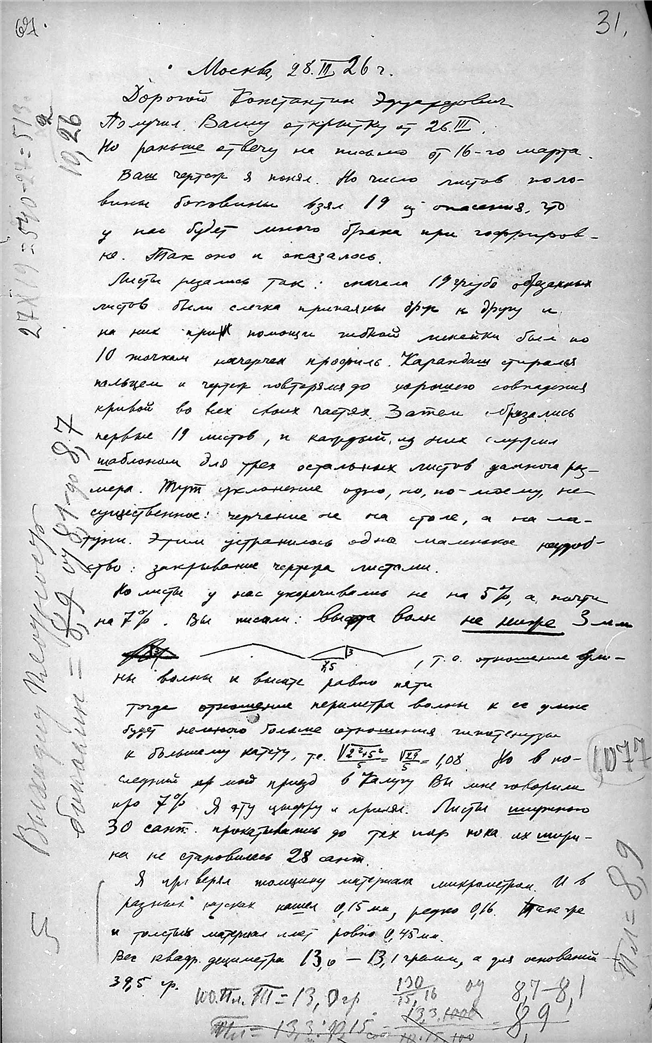 31.
Москва, 28.III.26 г.
Дорогой Константин Эдуардович
Получил Вашу открытку от 26.III.
Но раньше отвечу на письмо от 16-го марта.
Ваш чертеж я понял. Но число листов поло-
вины боковины взял 19 из опасения, что
у нас будет много брака при гофриров-
ке. Так оно и оказалось.
Листы резались так: сначала 19 грубо обрезанных
листов были слегка припаяны друг к другу и
на них при помощи гибкой линейки был по
10 точкам начерчен профиль. Карандаш стирался
пальцем и чертеж повторялся до хорошего совпадения
кривой во всех своих частях. Затем обрезались
первые 19 листов, и каждый из них служил
шаблоном для трех остальных листов данного раз-
мера. Тут уклонение одно, но, по-моему, не-
существенное: черчение не на столе, а на ла-
туни. Этим устранилось одно маленькое неудоб-
ство: закрывание чертежа листами.
Но листы у нас укорачивались не на 5%, а почти
на 7%. Вы писали: высота волн не ниже 3 мм
, т.о. отношение дли-
ны волны к высоте равно пяти
тогда отношение периметра волны к ее длине
будет немного больше отношения гипотенузы
к большему катету, т.е. √2²+5²/5 = √29/5 = 1,08. Но в по-
следний мой приезд в Калугу Вы мне говорили
про 7%. Я эту цифру и принял. Листы шириною
30 сант. прокатывались до тех пор пока их шири-
на не становилась 28 сант.
Я проверял толщину материала микрометром. И в
разных кусках нашел 0,15 мм, редко 0,16. Также
и толстый материал дает ровно 0,45 мм.
Вес квадр. дециметра 13,0 – 13,1 грамм, а для оснований
39,5 гр.
100.Пл.Т = 13,0 гр 130/15,16 од 8,7-8,1
8,9
27X19=540-27=513.
2
10,26
5
= 8,9 од 8,1-до 8,7
1,077
Пл = 8,9